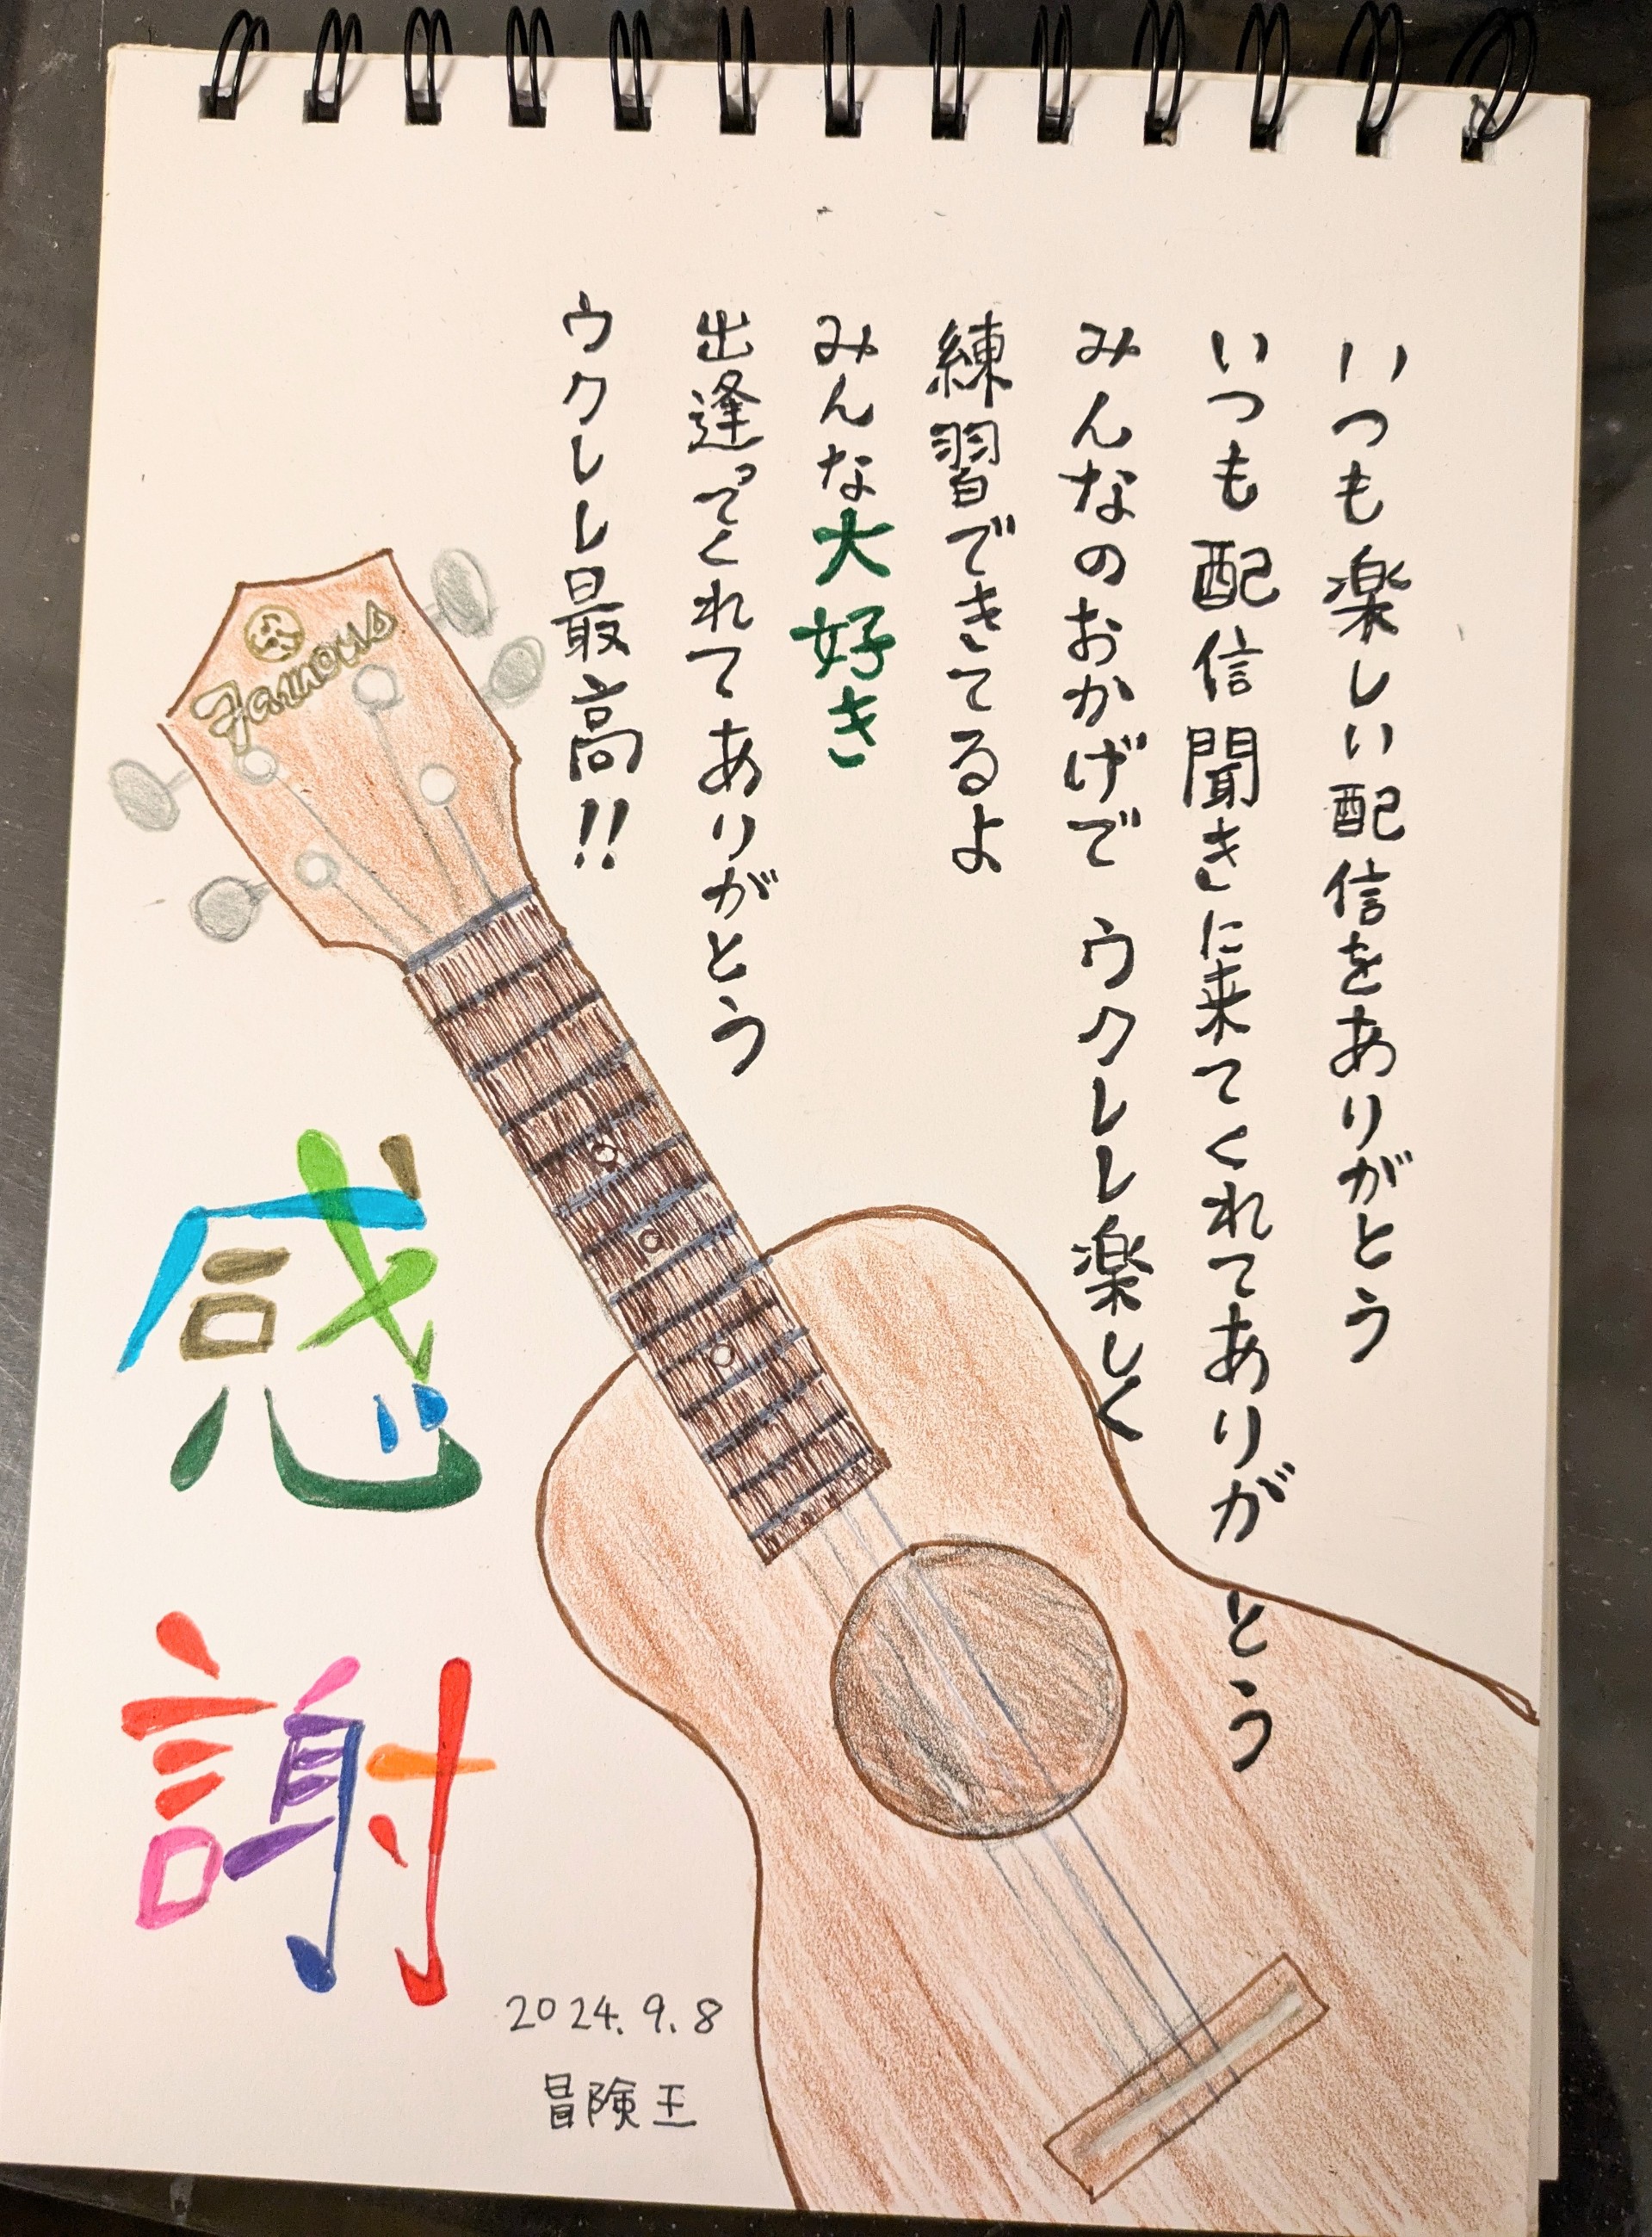 いつも楽しい配信をありがとう
いつも配信聞きに来てくれてありがとう
みんなのおかげで ウクレレ楽しく
練習できてるよ
みんな大好き
出逢ってくれてありがとう
ウクレレ最高!!
Famous
感謝
2024.9.8
冒険王